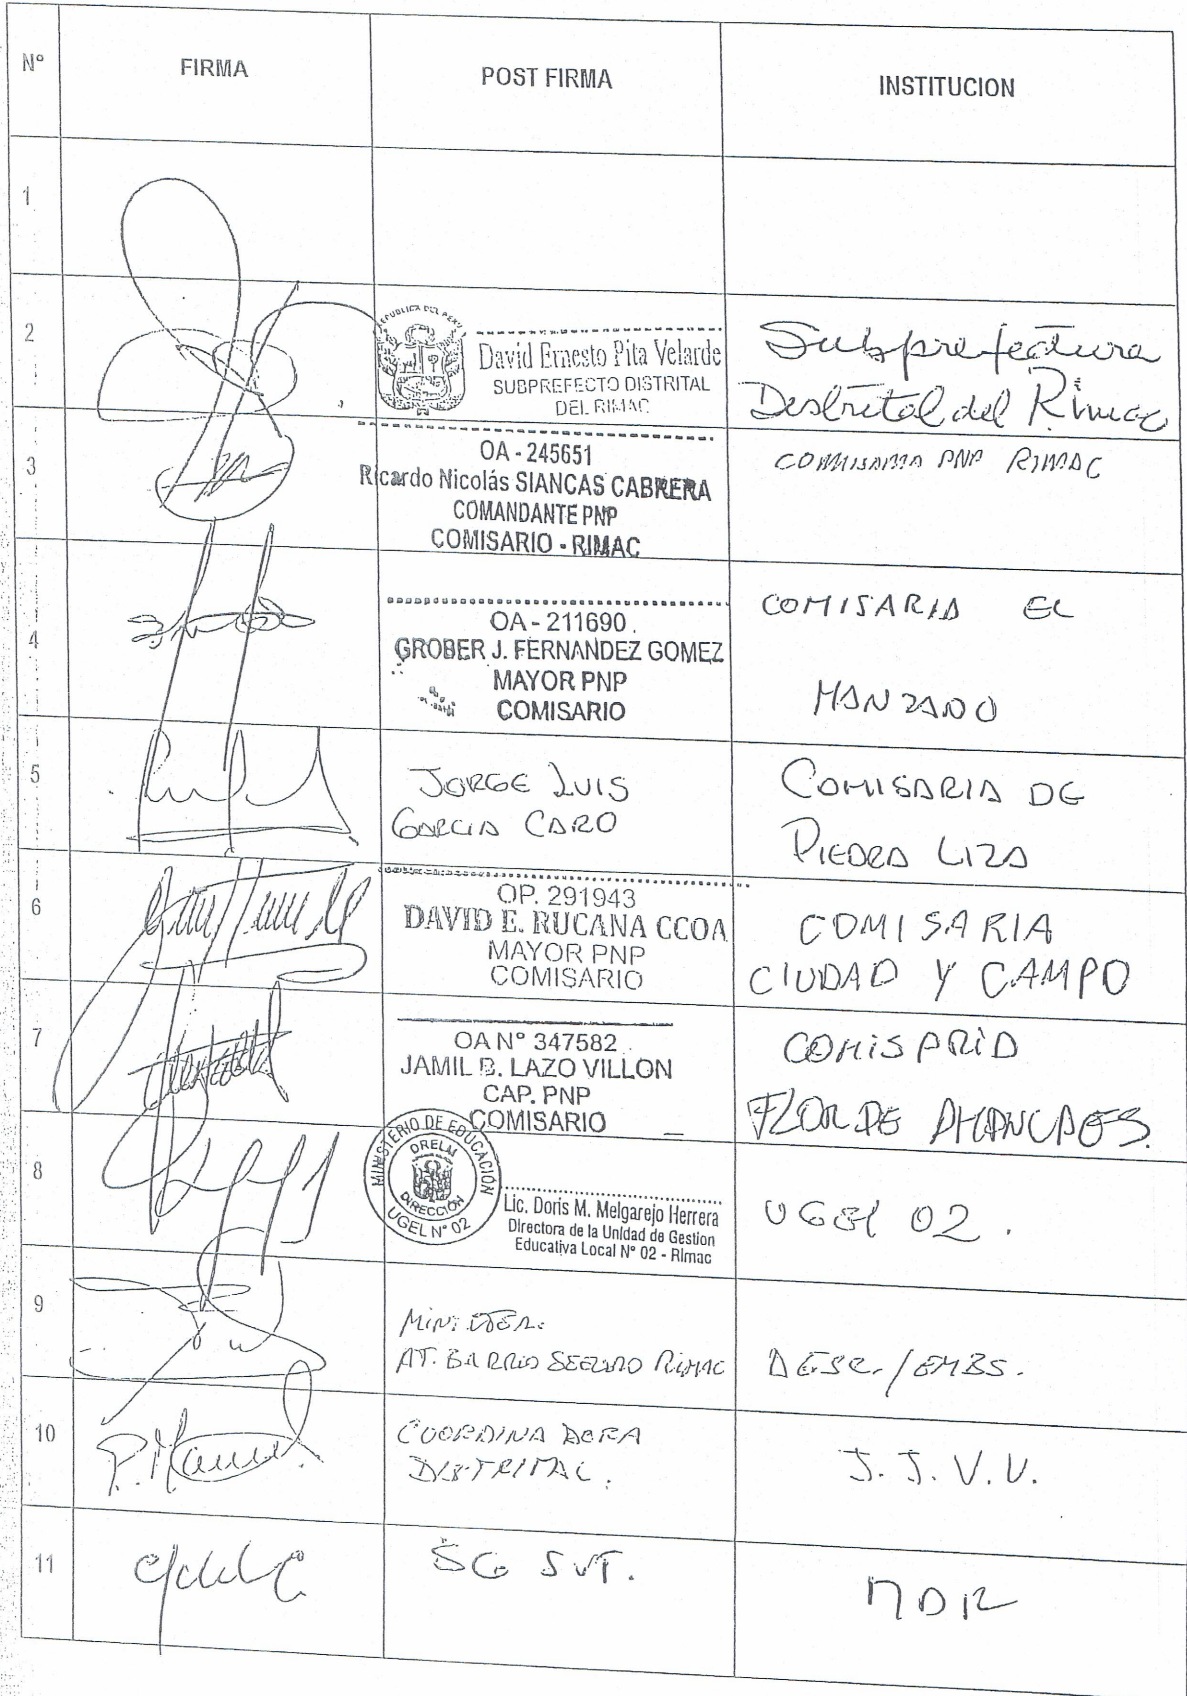 N° FIRMA POST FIRMA INSTITUCION
1
2
REPUBLICA DEL PERU
David Ernesto Pita Velarde
SUBPREFECTO DISTRITAL
DEL RIMAC
Subprefectura
Distrital del Rimac
3
OA - 245651
Ricardo Nicolás SIANCAS CABRERA
COMANDANTE PNP
COMISARIO - RIMAC
COMISARIA PNP RIMAC
4
OA - 211690
GROBER J. FERNANDEZ GOMEZ
MAYOR PNP
COMISARIO
COMISARIA EL
MANZANO
5
JORGE LUIS
GARCIA CARO
COMISARIA DE
PIEDRA LIZA
6
OP. 291943
DAVID E. RUCANA CCOA
MAYOR PNP
COMISARIO
COMISARIA
CIUDAD Y CAMPO
7
OA N° 347582
JAMIL B. LAZO VILLON
CAP. PNP
COMISARIO
COMISARIA
FLOR DE AMANCAES.
8
MINISTERIO DE EDUCACIÓN
DRELM
DIRECCIÓN
UGEL N° 02
Lic. Doris M. Melgarejo Herrera
Directora de la Unidad de Gestion
Educativa Local N° 02 - Rimac
UGEL 02.
9
AT. BARRIO SEGURO RIMAC
10
P. Manuel
COORDINADORA
DISTRITAL.
J. J. V. V.
11
SG SVT.
MDR